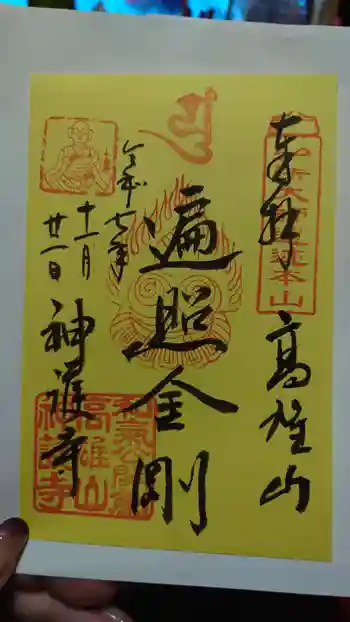 奉拝
高雄山
遍照金剛
令和七年
十一月
廿一日
神護寺
和氣公開創
高雄山
神護寺